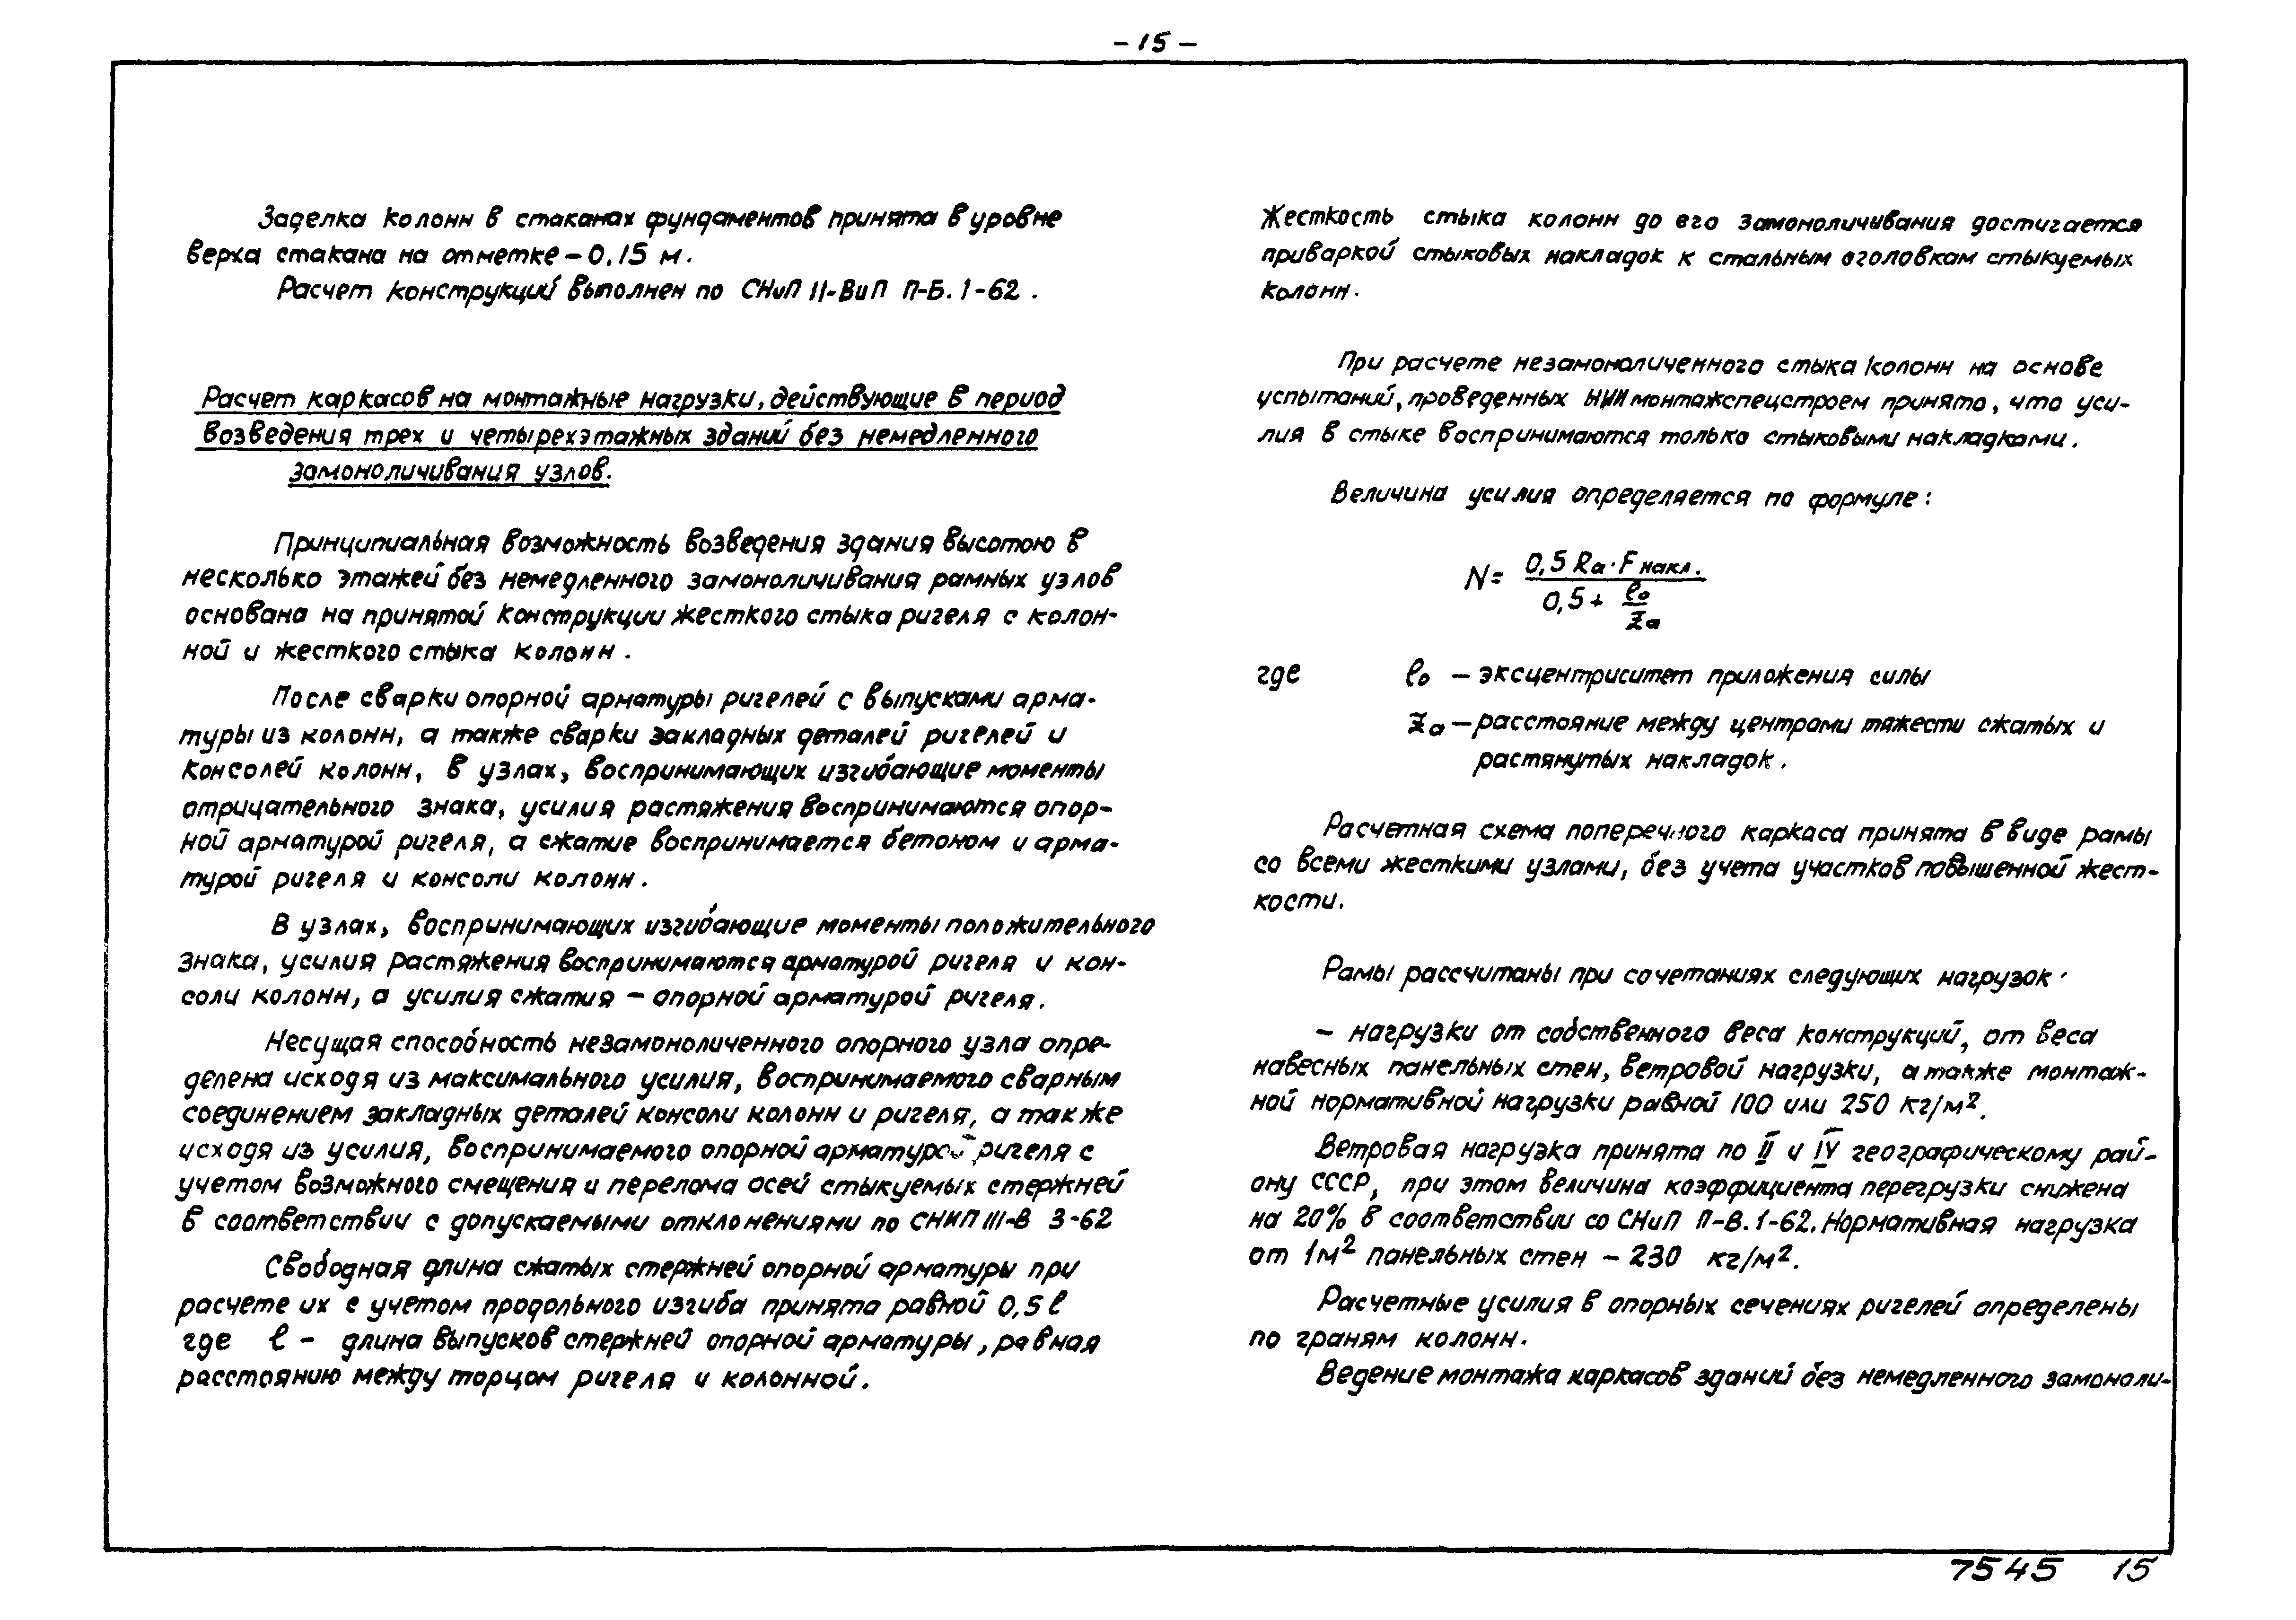 - 15 -
Заделка колонн в стаканах фундаментов принята в уровне
верха стакана на отметке - 0,15 м.
Расчет конструкций выполнен по СНиП II-ВиП П-Б.1-62.
Расчет каркасов на монтажные нагрузки, действующие в период
возведения трех и четырехэтажных зданий без немедленного
замоноличивания узлов.
Принципиальная возможность возведения здания высотою в
несколько этажей без немедленного замоноличивания рамных узлов
основана на принятой конструкции жесткого стыка ригеля с колон-
ной и жесткого стыка колонн.
После сварки опорной арматуры ригелей с выпусками арма-
туры из колонн, а также сварки закладных деталей ригелей и
консолей колонн, в узлах, воспринимающих изгибающие моменты
отрицательного знака, усилия растяжения воспринимаются опор-
ной арматурой ригеля, а сжатие воспринимается бетоном и арма-
турой ригеля и консоли колонн.
В узлах, воспринимающих изгибающие моменты положительного
знака, усилия растяжения воспринимаются арматурой ригеля и кон-
соли колонн, а усилия сжатия - опорной арматурой ригеля.
Несущая способность незамоноличенного опорного узла опре-
делена исходя из максимального усилия, воспринимаемого сварным
соединением закладных деталей консоли колонн и ригеля, а также
исходя из усилия, воспринимаемого опорной арматурой ригеля с
учетом возможного смещения и перелома осей стыкуемых стержней
в соответствии с допускаемыми отклонениями по СНИП III-В 3-62
Свободная длина сжатых стержней опорной арматуры при
расчете их с учетом продольного изгиба принята равной 0,5 ℓ
где ℓ - длина выпусков стержней опорной арматуры, равная
расстоянию между торцом ригеля и колонной.
Жесткость стыка колонн до его замоноличивания достигается
приваркой стыковых накладок к стальным оголовкам стыкуемых
колонн.
При расчете незамоноличенного стыка колонн на основе
успытаний, проведенных НИИмонтажспецстроем принято, что уси-
лия в стыке воспринимаются только стыковыми накладками.
Величина усилия определяется по формуле:
N = 0,5 Ra · F накл. / 0,5 + ℓo/Za
где ℓo - эксцентриситет приложения силы
Za - расстояние между центрами тяжести сжатых и
растянутых накладок.
Расчетная схема поперечного каркаса принята в виде рамы
со всеми жесткими узлами, без учета участков повышенной жест-
кости.
Рамы рассчитаны при сочетаниях следующих нагрузок·
- нагрузки от собственного веса конструкций, от веса
навесных панельных стен, ветровой нагрузки, а также монтаж-
ной нормативной нагрузки равной 100 или 250 кг/м².
Ветровая нагрузка принята по II и IV географическому рай-
ону СССР, при этом величина коэффициента перегрузки снижена
на 20% в соответствии со СНиП П-В.1-62. Нормативная нагрузка
от 1м² панельных стен - 230 кг/м².
Расчетные усилия в опорных сечениях ригелей определены
по граням колонн.
Ведение монтажа каркасов зданий без немедленного замоноли-
7545 15